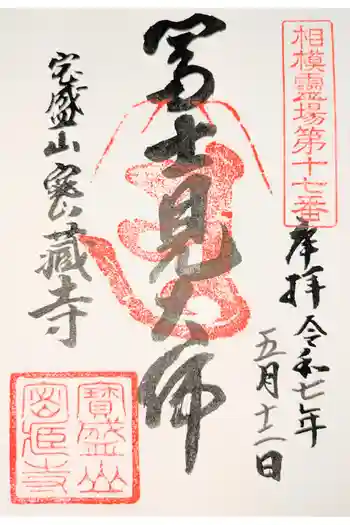 相模靈場第十七番
奉拝
令和七年
五月十二日
富士見大師
宝盛山密蔵寺
寶盛山
密蔵寺